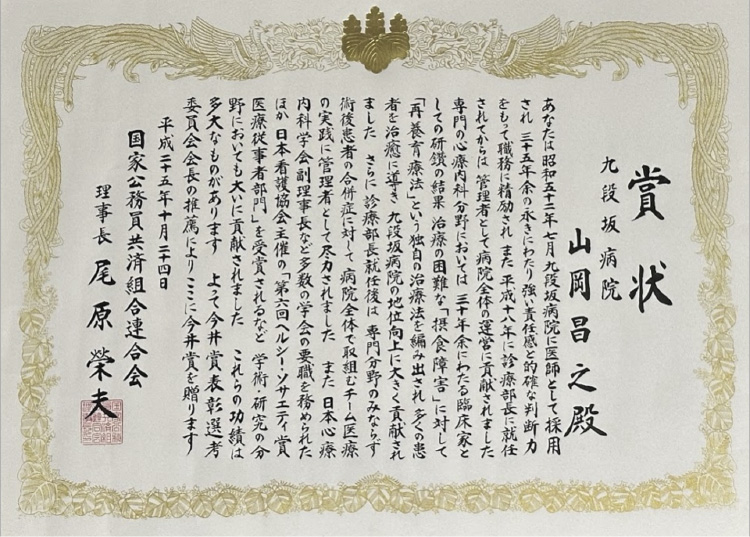 賞状
九段坂病院
山岡昌之殿
あなたは昭和五十二年七月九段坂病院に医師として採用
され 三十五年余の永きにわたり強い責任感と的確な判断力
をもって職務に精励され また 平成十八年に診療部長に就任
されてからは 管理者として病院全体の運営に貢献されました
専門の心療内科分野においては 三十年余にわたる臨床家と
しての研鑽の結果 治療の困難な「摂食障害」に対して
「再養育療法」という独自の治療法を編み出され 多くの患
者を治癒に導き 九段坂病院の地位向上に大きく貢献され
ました さらに診療部長就任後は 専門分野のみならず
術後患者の合併症に対して 病院全体で取組むチーム医療
の実践に管理者として尽力されました また 日本心療
内科学会副理事長など多数の学会の要職を務められた
ほか 日本看護協会主催の「第六回ヘルシー・ソサエティ賞
医療従事者部門」を受賞されるなど 学術・研究の分
野においても大いに貢献されました これらの功績は
多大なものがあります よって今井賞表彰選考
委員会会長の推薦によりここに今井賞を贈ります
平成二十五年十月二十四日
国家公務員共済組合連合会
理事長 尾原榮夫